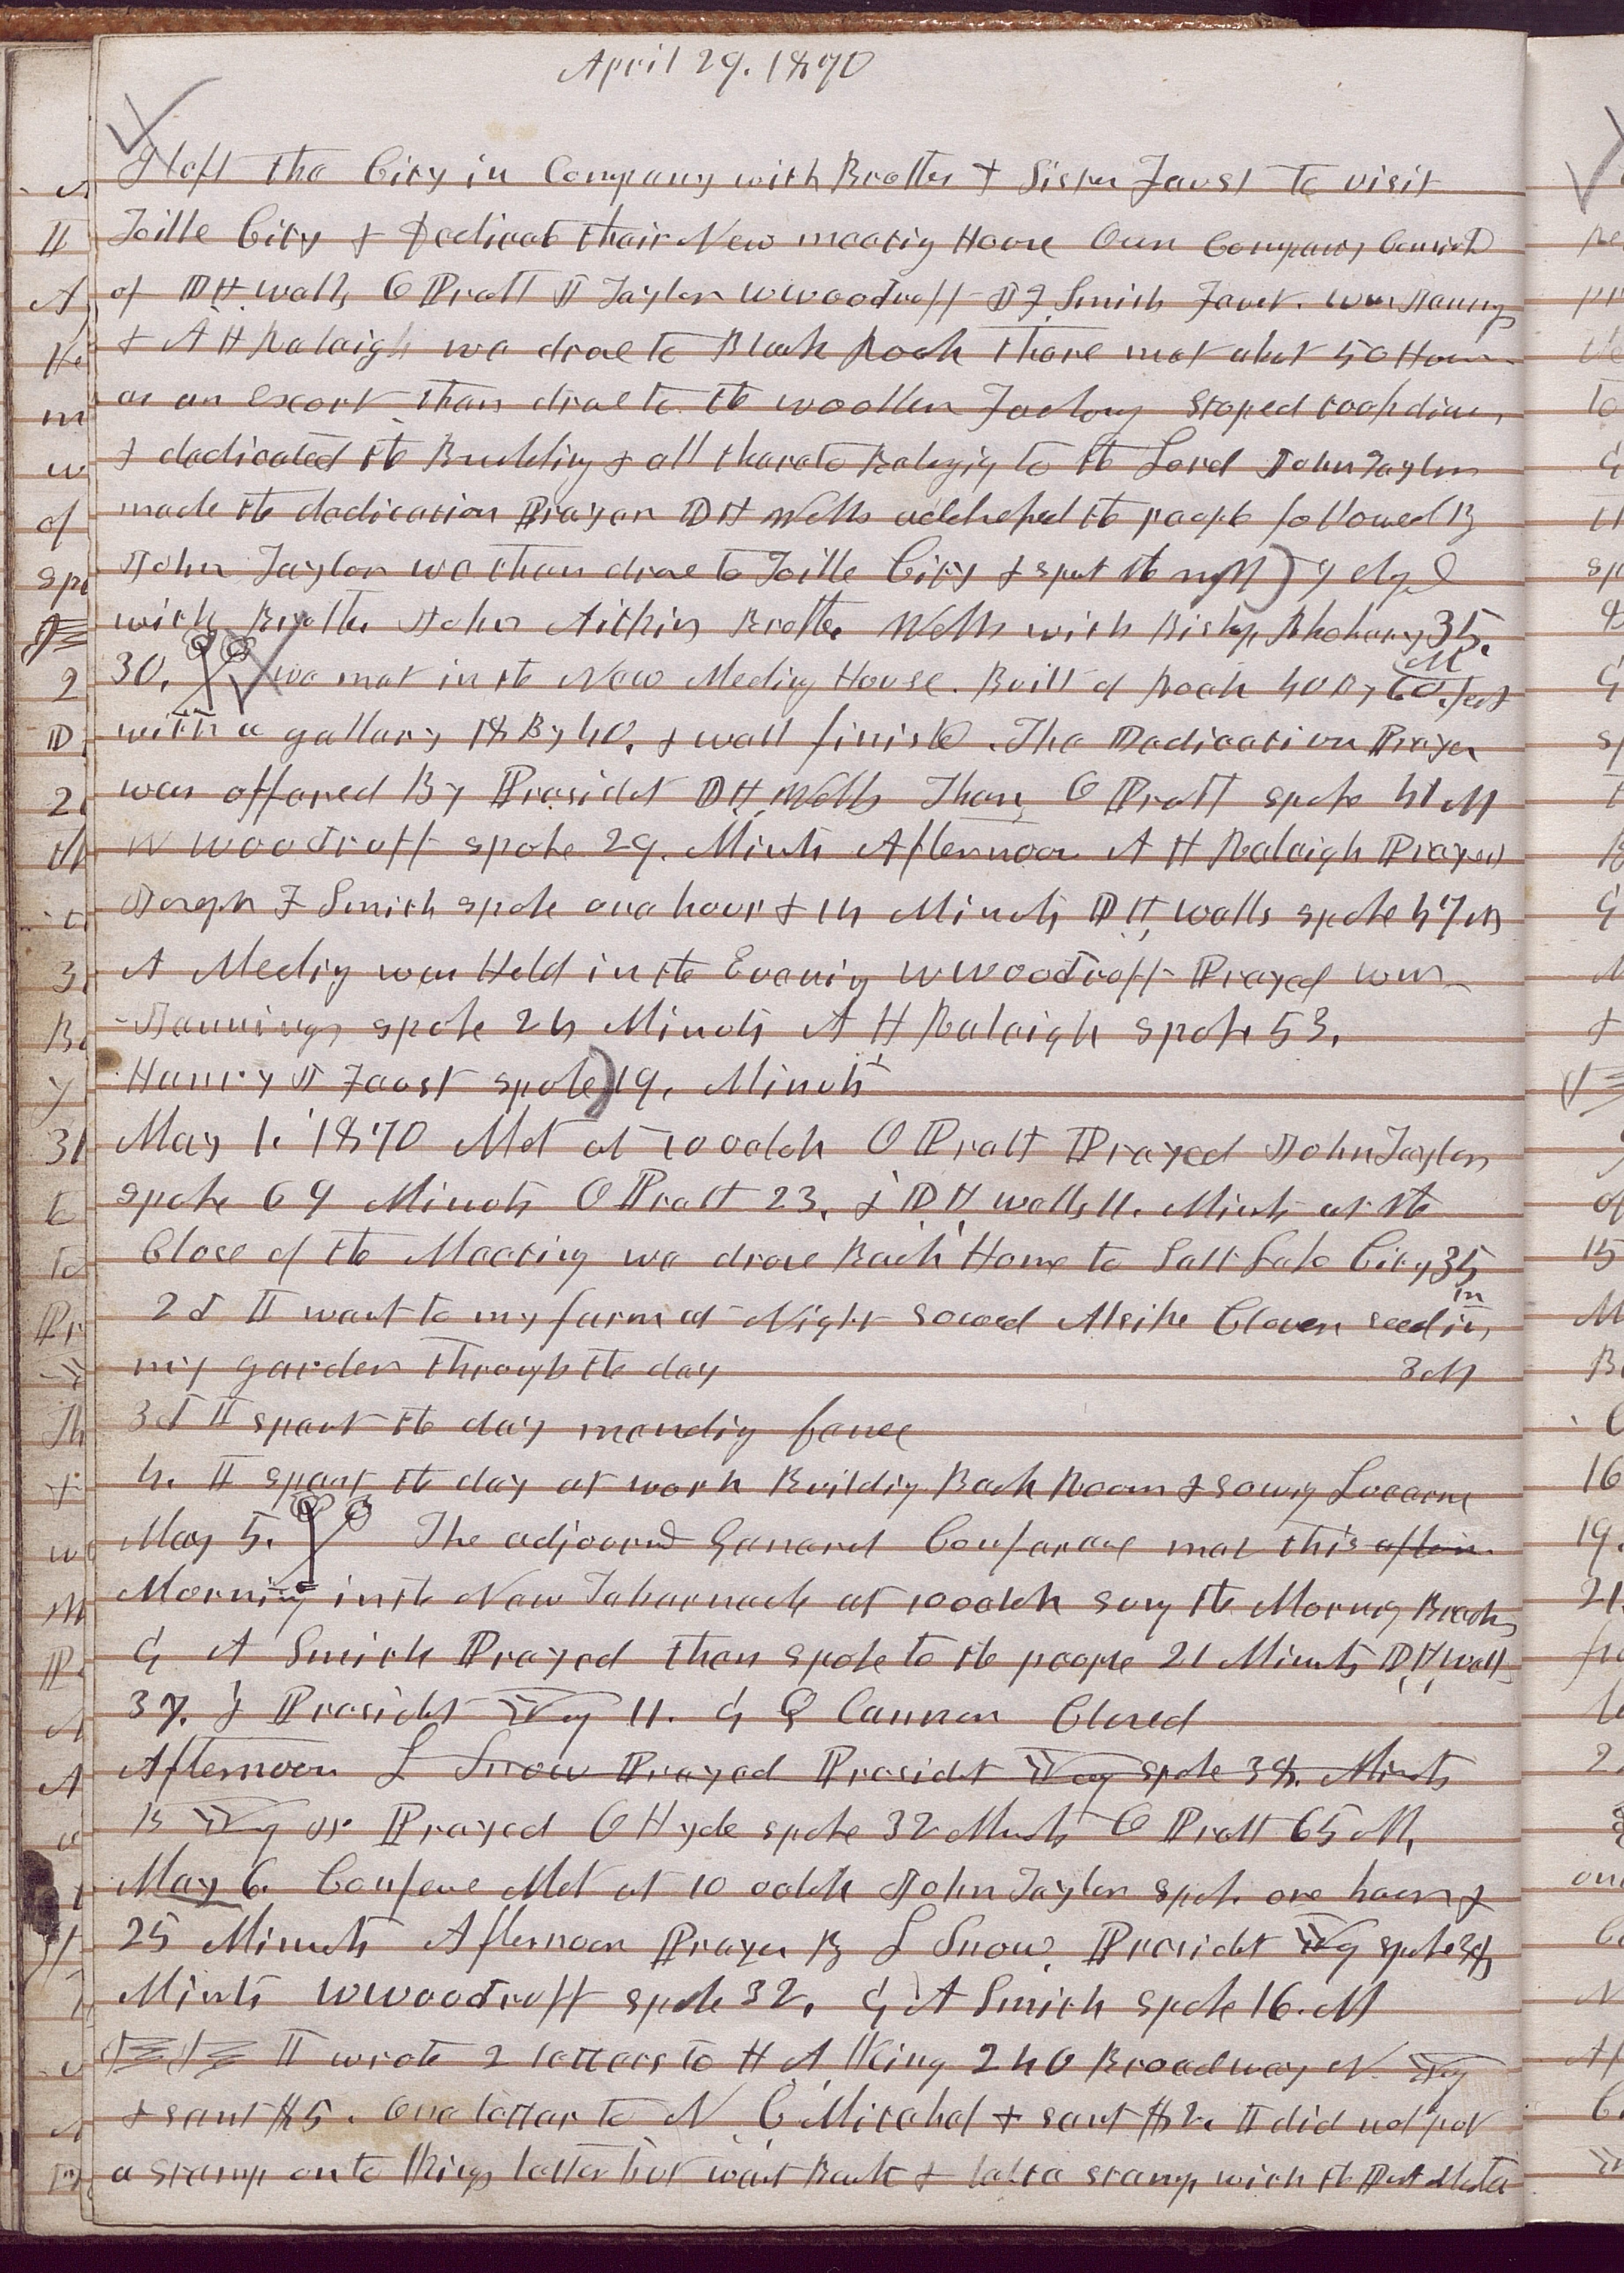 April 29. 1870
I left the City in Company with Brother & Sister Faust to visit
Toille City & Dedicate their New meeting House Our Company Consistd
of D H Wells O Pratt J Taylor W Woodruff J F Smith Faust. Wm Jennings
& A H Raleigh we drove to Black Rock There met about 50 Horsmen
as an escort then drove to the woollen Factory stoped took dinner
& dedicated the Building & all thereto Belonging to the Lord John Taylor
made the dedication Prayer D H Wells addressed the people followed By
John Taylor we then drove to Toille City & spent the night
with Brother John Aitkin Brother Wells with Bishop Rhoberry 35.
30. we met in the New Meeting House. Built of Rock 40 By 60. feet
with a gallery 18 By 40. & well finished. The Dedication Prayer
was offered By President D H Wells Then O Pratt spoke 41 M
W Woodruff spoke 29. Minuts Afternoon A H Raleigh Prayed
Joseph F Smith spoke one hour & 14 Minuts D H Wells spoke 47 M
A Meeting was Held in the Evening W Woodruff Prayed Wm
Jennings spoke 24 Minuts A H Raleigh spoke 53.
Hanry J Faust spoke 19. Minuts
May 1. 1870 Met at 10 oclok O Pratt Prayed John Taylor
spoke 69 Minuts O Pratt 23. & D H Wells 11. Minuts at the
Close of the Meeting we drove Back Home to Salt Lake City 35
2d I went to my farm at Night sowed Alsike Clover seed in
my garden through the day 3 M
3d I spent the day mending fence
4. I spent the day at work Building Back Room & sowing Lucerne
May 5. The adjourned General Conference met this aftern
Morning in the New Tabernacle at 10 oclok sung the Morning Breaks
G A Smith Prayed then spoke to the people 21 Minuts D H Wells
37. & President Young 11. G Q Cannon Closed
Afternoon L Snow Prayed President Young spoke 38. Minuts
B Young jr Prayed O Hyde spoke 32 Minuts O Pratt 65 M,
May 6. Conference Met at 10 oclok John Taylor spoke one hour &
25 Minuts Afternoon Prayer By L Snow. President Young spoke 38
Minuts W Woodruff spoke 32. G A Smith spoke 16. M
I wrote 2 letters to H. A. King 240 Broadway N. Y
& sent $5. One letter to N C Mitchel & sent $2. I did not put
a stamp on to Kings letter but went Back & left a stamp with the Post Master